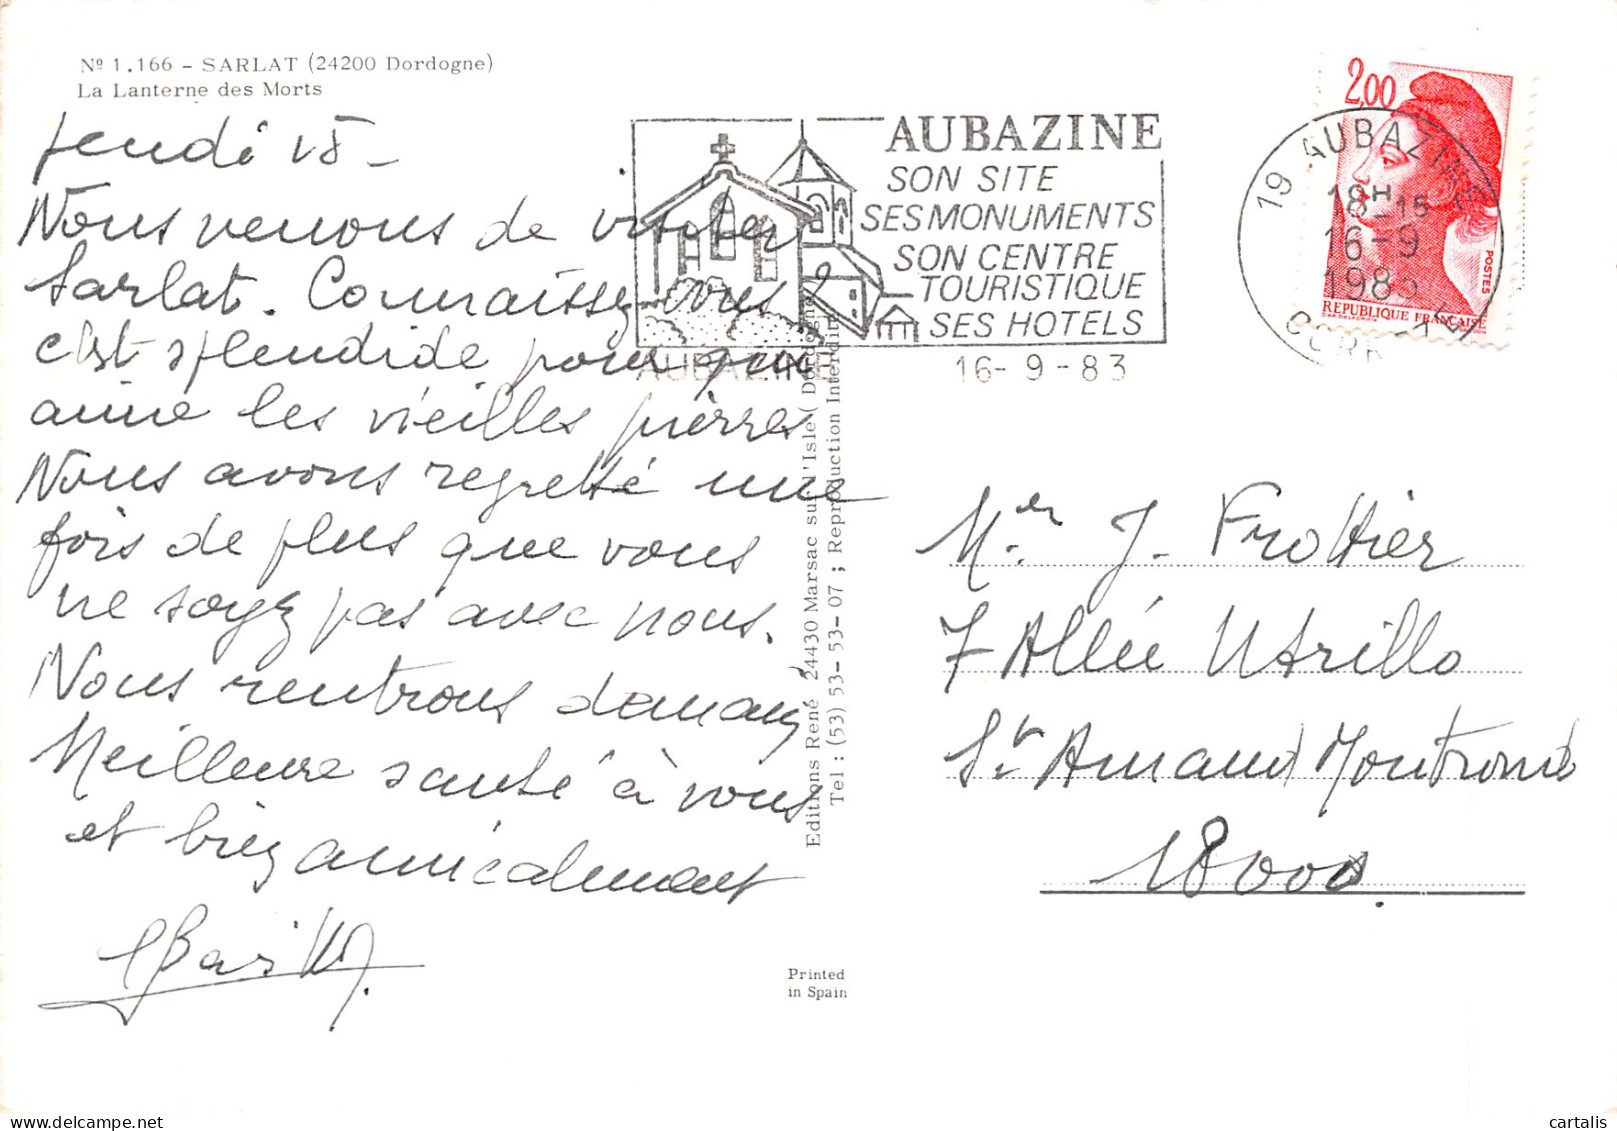 Nº 1.166 - SARLAT (24200 Dordogne)
La Lanterne des Morts
Jeudi 15 -
Nous venons de visiter
Sarlat. Connaissez-vous ?
c'est splendide pour qui
aime les vieilles pierres
Nous avons regretté une
fois de plus que vous
ne soyez pas avec nous.
Nous rentrons demain
Meilleure santé à vous
et bien amicalement
AUBAZINE
SON SITE
SES MONUMENTS
SON CENTRE
TOURISTIQUE
SES HOTELS
AUBAZINE
16-9-83
2,00
POSTES
REPUBLIQUE FRANÇAISE
19 AUBAZINE
18H-15
16-9
1983
Editions René 24430 Marsac sur l'Isle (Dordogne)
Tel : (53) 53-53-07 ; Reproduction Interdite
Mer J. Frottier
7 Allée Utrillo
St Amand Montrond
18000.
Printed
in Spain
cartalis